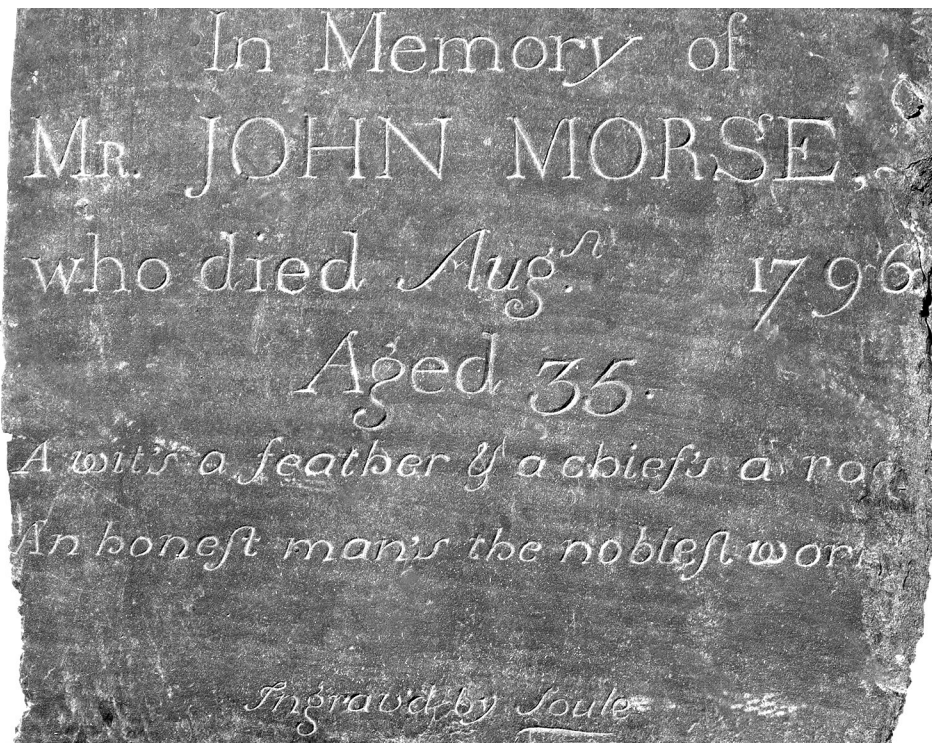 In Memory of
Mr. JOHN MORSE,
who died Aug.ſt 1796
Aged 35.
A wit's a feather & a chief's a
An honeſt man's the nobleſt
Ingrav'd by Soule